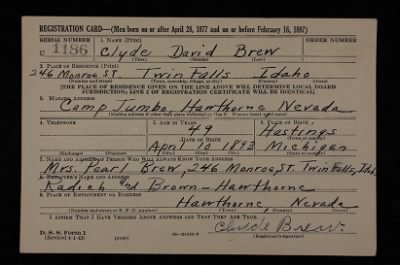 REGISTRATION CARD—(Men born on or after April 28, 1877 and on or before February 16, 1897)
SERIAL NUMBER 1. NAME (Print) ORDER NUMBER
U 1186 Clyde David Brew
(First) (Middle) (Last)
2. PLACE OF RESIDENCE (Print)
246 Monroe St. Twin Falls Idaho
(Number and street) (Town, township, village, or city) (County) (State)
[THE PLACE OF RESIDENCE GIVEN ON THE LINE ABOVE WILL DETERMINE LOCAL BOARD
JURISDICTION; LINE 2 OF REGISTRATION CERTIFICATE WILL BE IDENTICAL]
3. MAILING ADDRESS
Camp Jumbo, Hawthorne Nevada
4. TELEPHONE 5. AGE IN YEARS 6. PLACE OF BIRTH
49 Hastings
DATE OF BIRTH (Town or county)
April 10 1893 Michigan
(Mo.) (Day) (Yr.) (State or country)
7. NAME AND ADDRESS OF PERSON WHO WILL ALWAYS KNOW YOUR ADDRESS
Mrs. Pearl Brew, 246 Monroe St. Twin Falls, Ida
8. EMPLOYER'S NAME AND ADDRESS
Kadich and Brown - Hawthorne
9. PLACE OF EMPLOYMENT OR BUSINESS
Hawthorne, Nevada
(Number and street or R. F. D. number) (Town) (County) (State)
I AFFIRM THAT I HAVE VERIFIED ABOVE ANSWERS AND THAT THEY ARE TRUE.
D. S. S. Form 1
(Revised 4-1-42) Clyde Brew
(Registrant's signature)